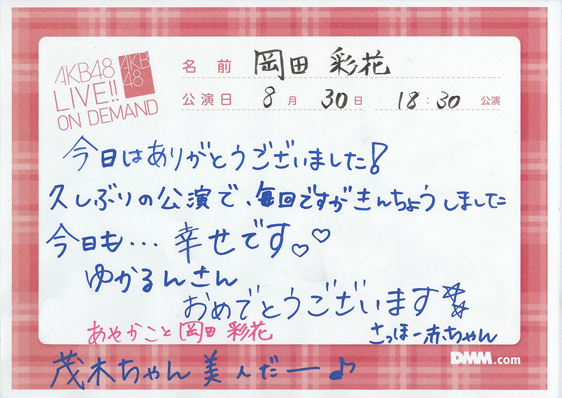 AKB48
LIVE!!
ON DEMAND
AKB
48
名前 岡田 彩花
公演日 8月 30日 18:30 公演
今日はありがとうございました!
久しぶりの公演で、毎回ですがきんちょうしました
今日も… 幸せです♡♡
ゆかるんさん
おめでとうございます☆☆
あやかこと岡田 彩花
さっほー赤ちゃん
DMM.com
茂木ちゃん美人だー♪